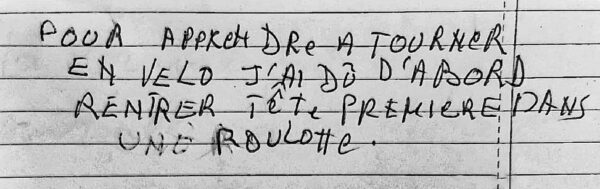 POUR APPRENDRE A TOURNER
EN VELO J'AI DÛ D'ABORD
RENTRER TÊTE PREMIERE DANS
UNE ROULOTTE.